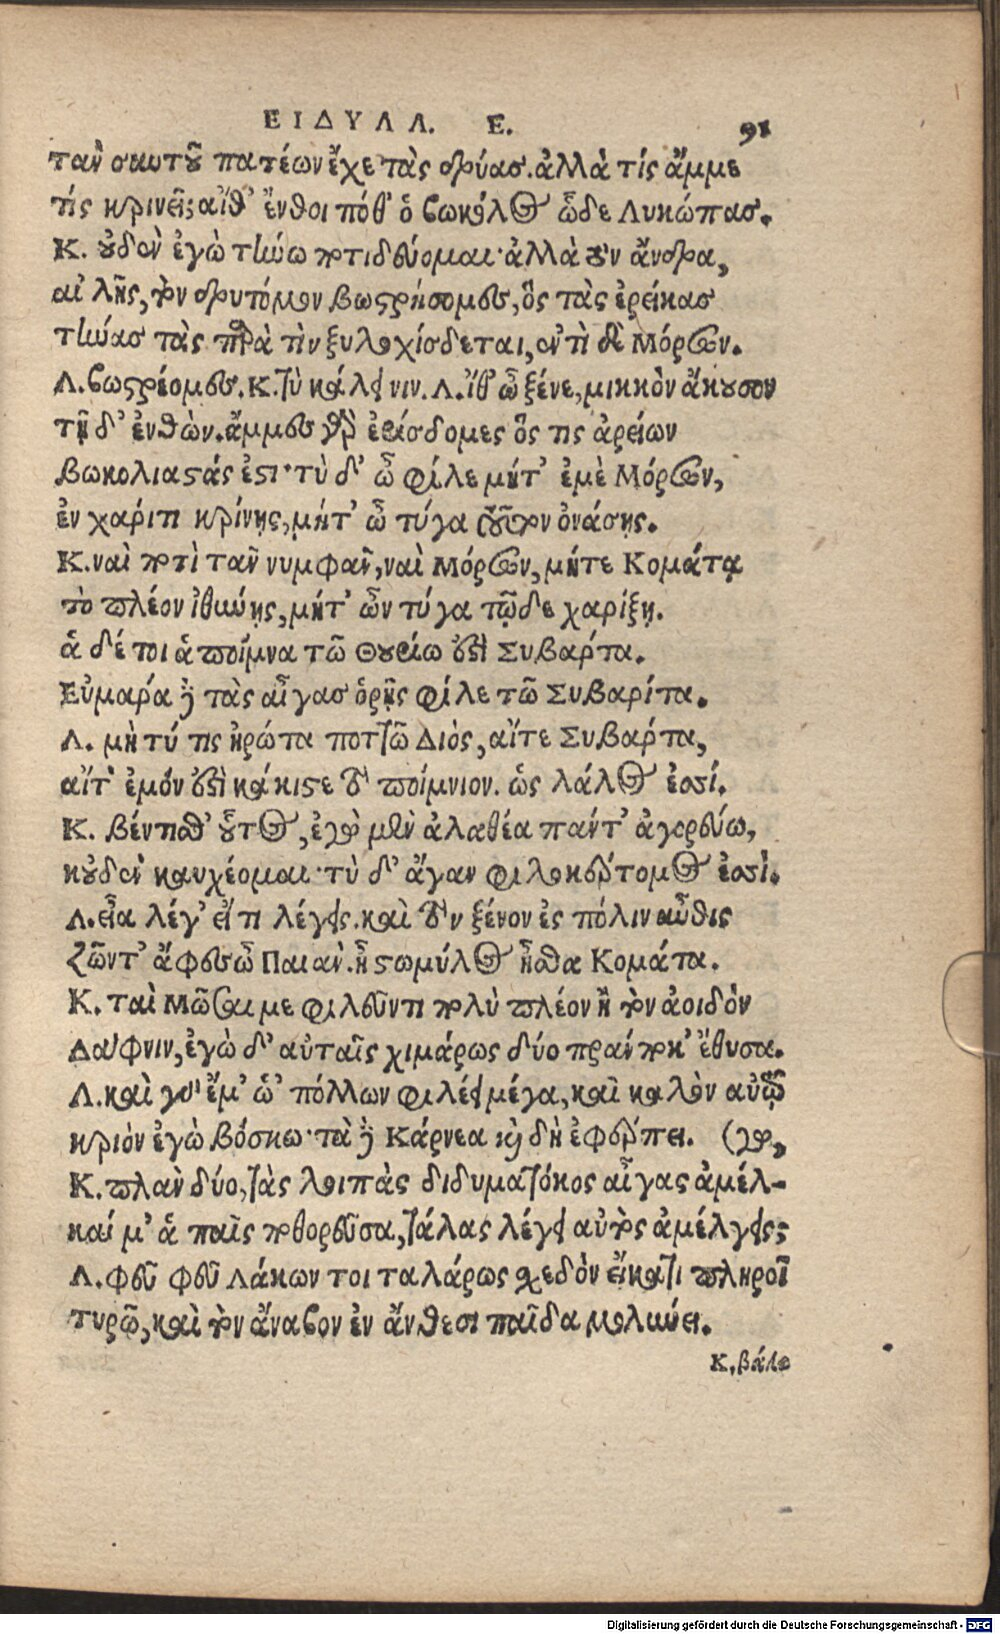 ΕΙΔΥΛΛ. Ε. 91
τὰν σαυτοῦ πατέων ἔχε τὰς δρύας. ἀλλὰ τίς ἄμμε
τίς κρινεῖ; αἴθ' ἔνθοι πόθ' ὁ βωκόλος ὧδε Λυκώπας.
Κ. οὐδὲν ἐγὼ τήνω ποτιδεύομαι· ἀλλὰ τὸν ἄνδρα,
αἰ λῇς, τὸν δρυτόμον βωστρήσομες, ὃς τὰς ἐρείκας
τήνας τὰς παρὰ τὶν ξυλοχίσδεται, ἐντὶ δὲ Μόρσων.
Λ. βωστρέομες. Κ. τὺ κάλει νιν. Λ. ἴθ' ὦ ξένε, μικκὸν ἄκουσον
τῇδ' ἐνθών. ἄμμες γὰρ ἐρίσδομες ὅς τις ἀρείων
βωκολιαστάς ἐστι· τὺ δ' ὦ φίλε μήτ' ἐμὲ Μόρσων,
ἐν χάριτι κρίνῃς, μήτ' ὦ τύγα τοῦτον ὀνάσῃς.
Κ. ναὶ ποτὶ τᾶν νυμφᾶν, ναὶ Μόρσων, μήτε Κομάτᾳ
τὸ πλέον ἰθύνῃς, μήτ' ὦν τύγα τῷδε χαρίξῃ.
ἁ δέ τοι ἁ ποίμνα τῶ Θουρίω ἐστὶ Συβάρτα.
Εὐμάρα δὲ τὰς αἶγας ὁρῇς φίλε τῶ Συβαρίτα.
Λ. μὴ τύ τις ἠρώτα ποττῶ Διὸς, αἴτε Συβάρτα,
αἴτ' ἐμόν ἐστὶ κάκιστε τὸ ποίμνιον. ὡς λάλος ἐσσί.
Κ. βέντισθ' οὗτος, ἐγὼ μὲν ἀλαθέα πάντ' ἀγορεύω,
κοὐδὲν καυχέομαι· τὺ δ' ἄγαν φιλοκέρτομος ἐσσί.
Λ. εἶα λέγ' εἴ τι λέγεις. καὶ τὸν ξένον ἐς πόλιν αὖθις
ζῶντ' ἄφες ὦ Παιάν. ἦ στωμύλος ἦσθα Κομάτα.
Κ. ταὶ Μῶσαί με φιλεῦντι πολὺ πλέον ἢ τὸν ἀοιδὸν
Δάφνιν, ἐγὼ δ' αὐταῖς χιμάρως δύο πράν ποκ' ἔθυσα.
Λ. καὶ γὰρ ἔμ' ὡ' πόλλων φιλέει μέγα, καὶ καλὸν αὐτῷ
κριὸν ἐγὼ βόσκω· τὰ δὲ Κάρνεα καὶ δὴ ἐφέρπει. (γω,
Κ. πλὰν δύο, τὰς λοιπὰς διδυματόκος αἶγας ἀμέλ-
καί μ' ἁ παῖς ποθορεῦσα, τάλας λέγει αὐτὸς ἀμέλγεις;
Λ. φεῦ φεῦ Λάκων τοι ταλάρως σχεδὸν εἴκατι πληροῖ
τυρῶ, καὶ τὸν ἄναβον ἐν ἄνθεσι παῖδα μολύνει.
Κ. βάλε
Digitalisierung gefördert durch die Deutsche Forschungsgemeinschaft - DFG